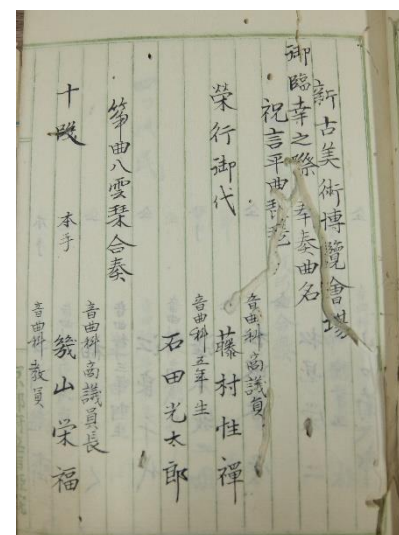 新古美術博覧會場
御臨幸之際奉奏曲名
祝言平曲
榮行御代
音曲科商議員
藤村性禪
音曲科五年生
石田光太郎
箏曲八雲琴合奏
十
本手
音曲科商議員長
幾山栄福
音曲科教員